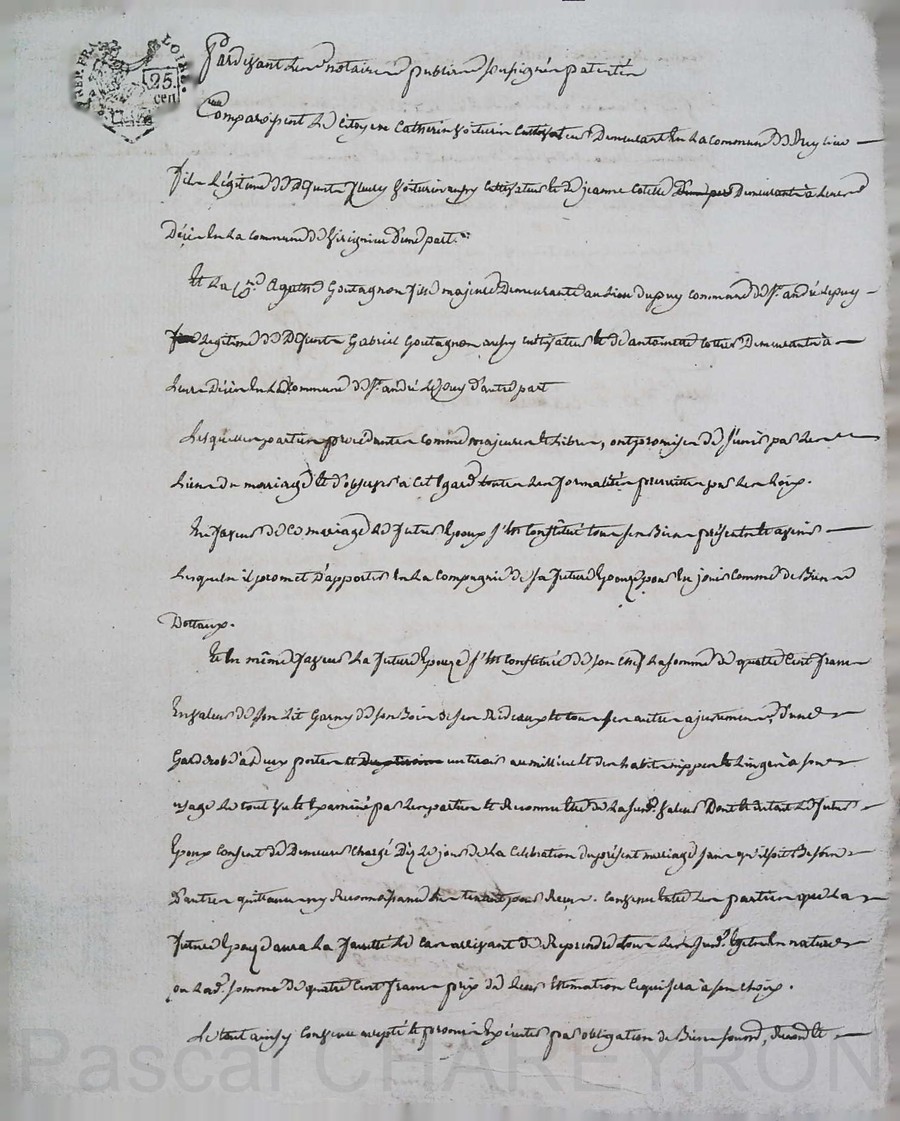 REP. FRA. LOIRE.
25
cen
Pardevant les notaires publics soussignés patentés
Comparoissent le citoyen Catherin Voiturin cultivateur demeurant en la commune de
fils légitime de défunt fleury Voiturin aussy cultivateur et de jeanne demeurants à leurs
Décès en la commune de Virignieu d'une part.
Et la C.ne Agathe Goutagnon fille majeure demeurante au lieu dupuy commune de St. andré lepuy
légitime de défunt Gabriel Goutagnon aussy cultivateur et de antoinette demeurants à
leurs Décès en lad commune de St. andré Lepuy d'autre part
Lesquelles parties procédantes comme majeures et libres, ont promis de s'unir par les
Liens du mariage et d'observer à cet égard toutes les formalités prescrittes par les loix.
En faveur de ce mariage le futur Epoux s'est constitué tous ses Biens présents et avenir
Lesquels il promet d'apporter en la compagnie de sa future Epouze pour en jouir comme de Biens
Dottaux.
Et en même faveur la future Epouze s'est constituée de son chef la somme de quatre cent francs
En valeur de son Lit Garny de son Bois de ses Rideaux et tous ses autres ajustements, d'une
Garderobe à deux portes et un tiroir au millieu et des habits nippes et linges à son
usage le tout vu et Examiné par les parties et Reconnu être de la susd. valeur Dont et du tout le futur
Epoux consent de Demeurer chargé Dès le jour de la célébration du présent mariage sans qu'il soit Besoin
D'autres quittances ny Reconnoissance les tenant pour Reçus. convenu entre les parties que la
future Epouze aura la faculté le cas arrivant de Reprendre tous les susd. Effets en nature
ou lad. somme de quatre cent francs prix de leur Estimation ce qui sera à son choix.
Le tout ainsy convenu accepté et promis Exécuter par obligation de Biens et
Pascal CHAREYRON